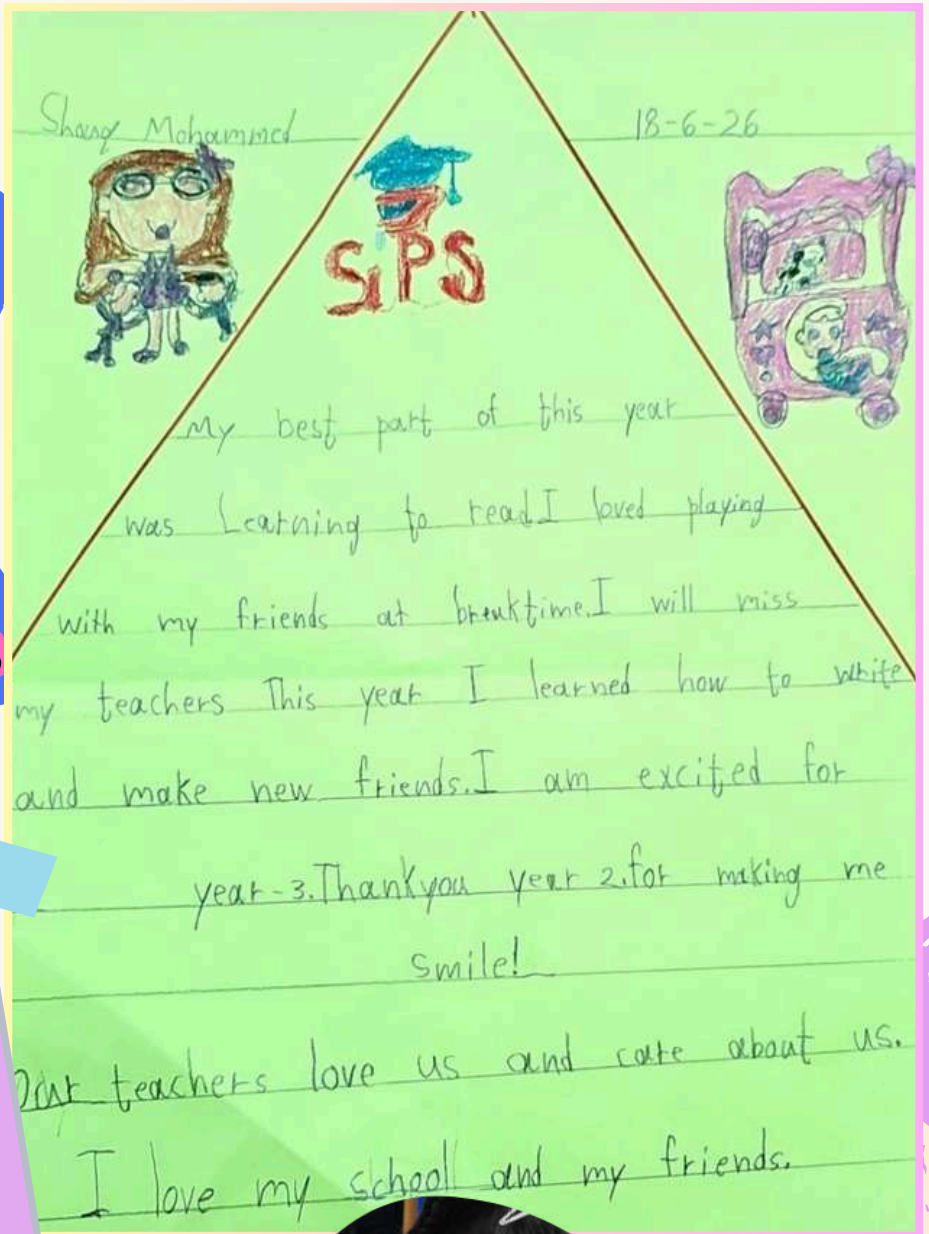 Mohammed 18-6-26
SPS
My best part of this year
was Learning to read.I loved playing
with my friends at breaktime.I will miss
my teachers This year I learned how to write
and make new friends.I am excited for
year-3.Thankyou year 2.for making me
smile!
Our teachers love us and care about us.
I love my school and my friends.